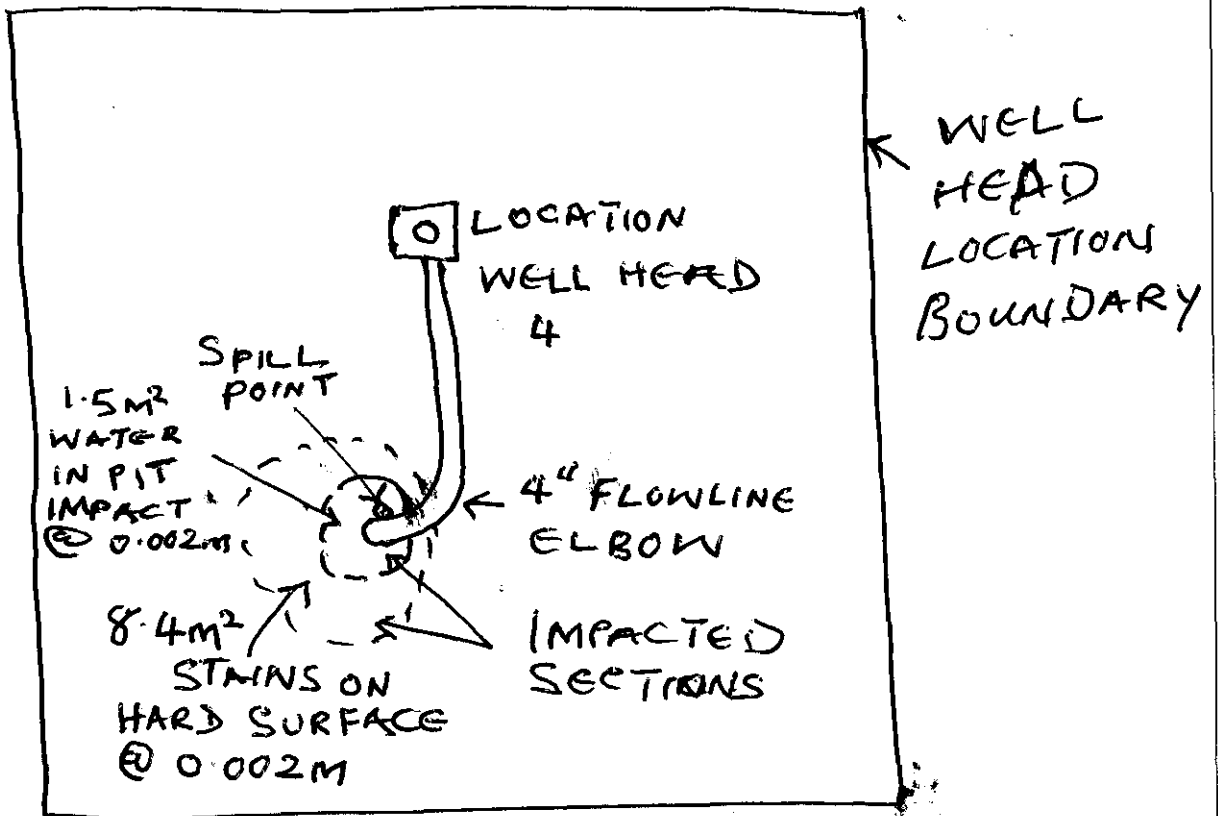 WELL
HEAD
LOCATION
BOUNDARY
LOCATION
WELL HEAD
4
SPILL
POINT
1.5M²
WATER
IN PIT
IMPACT
@ 0.002M
4" FLOWLINE
ELBOW
8.4M²
STAINS ON
HARD SURFACE
@ 0.002M
IMPACTED
SECTIONS